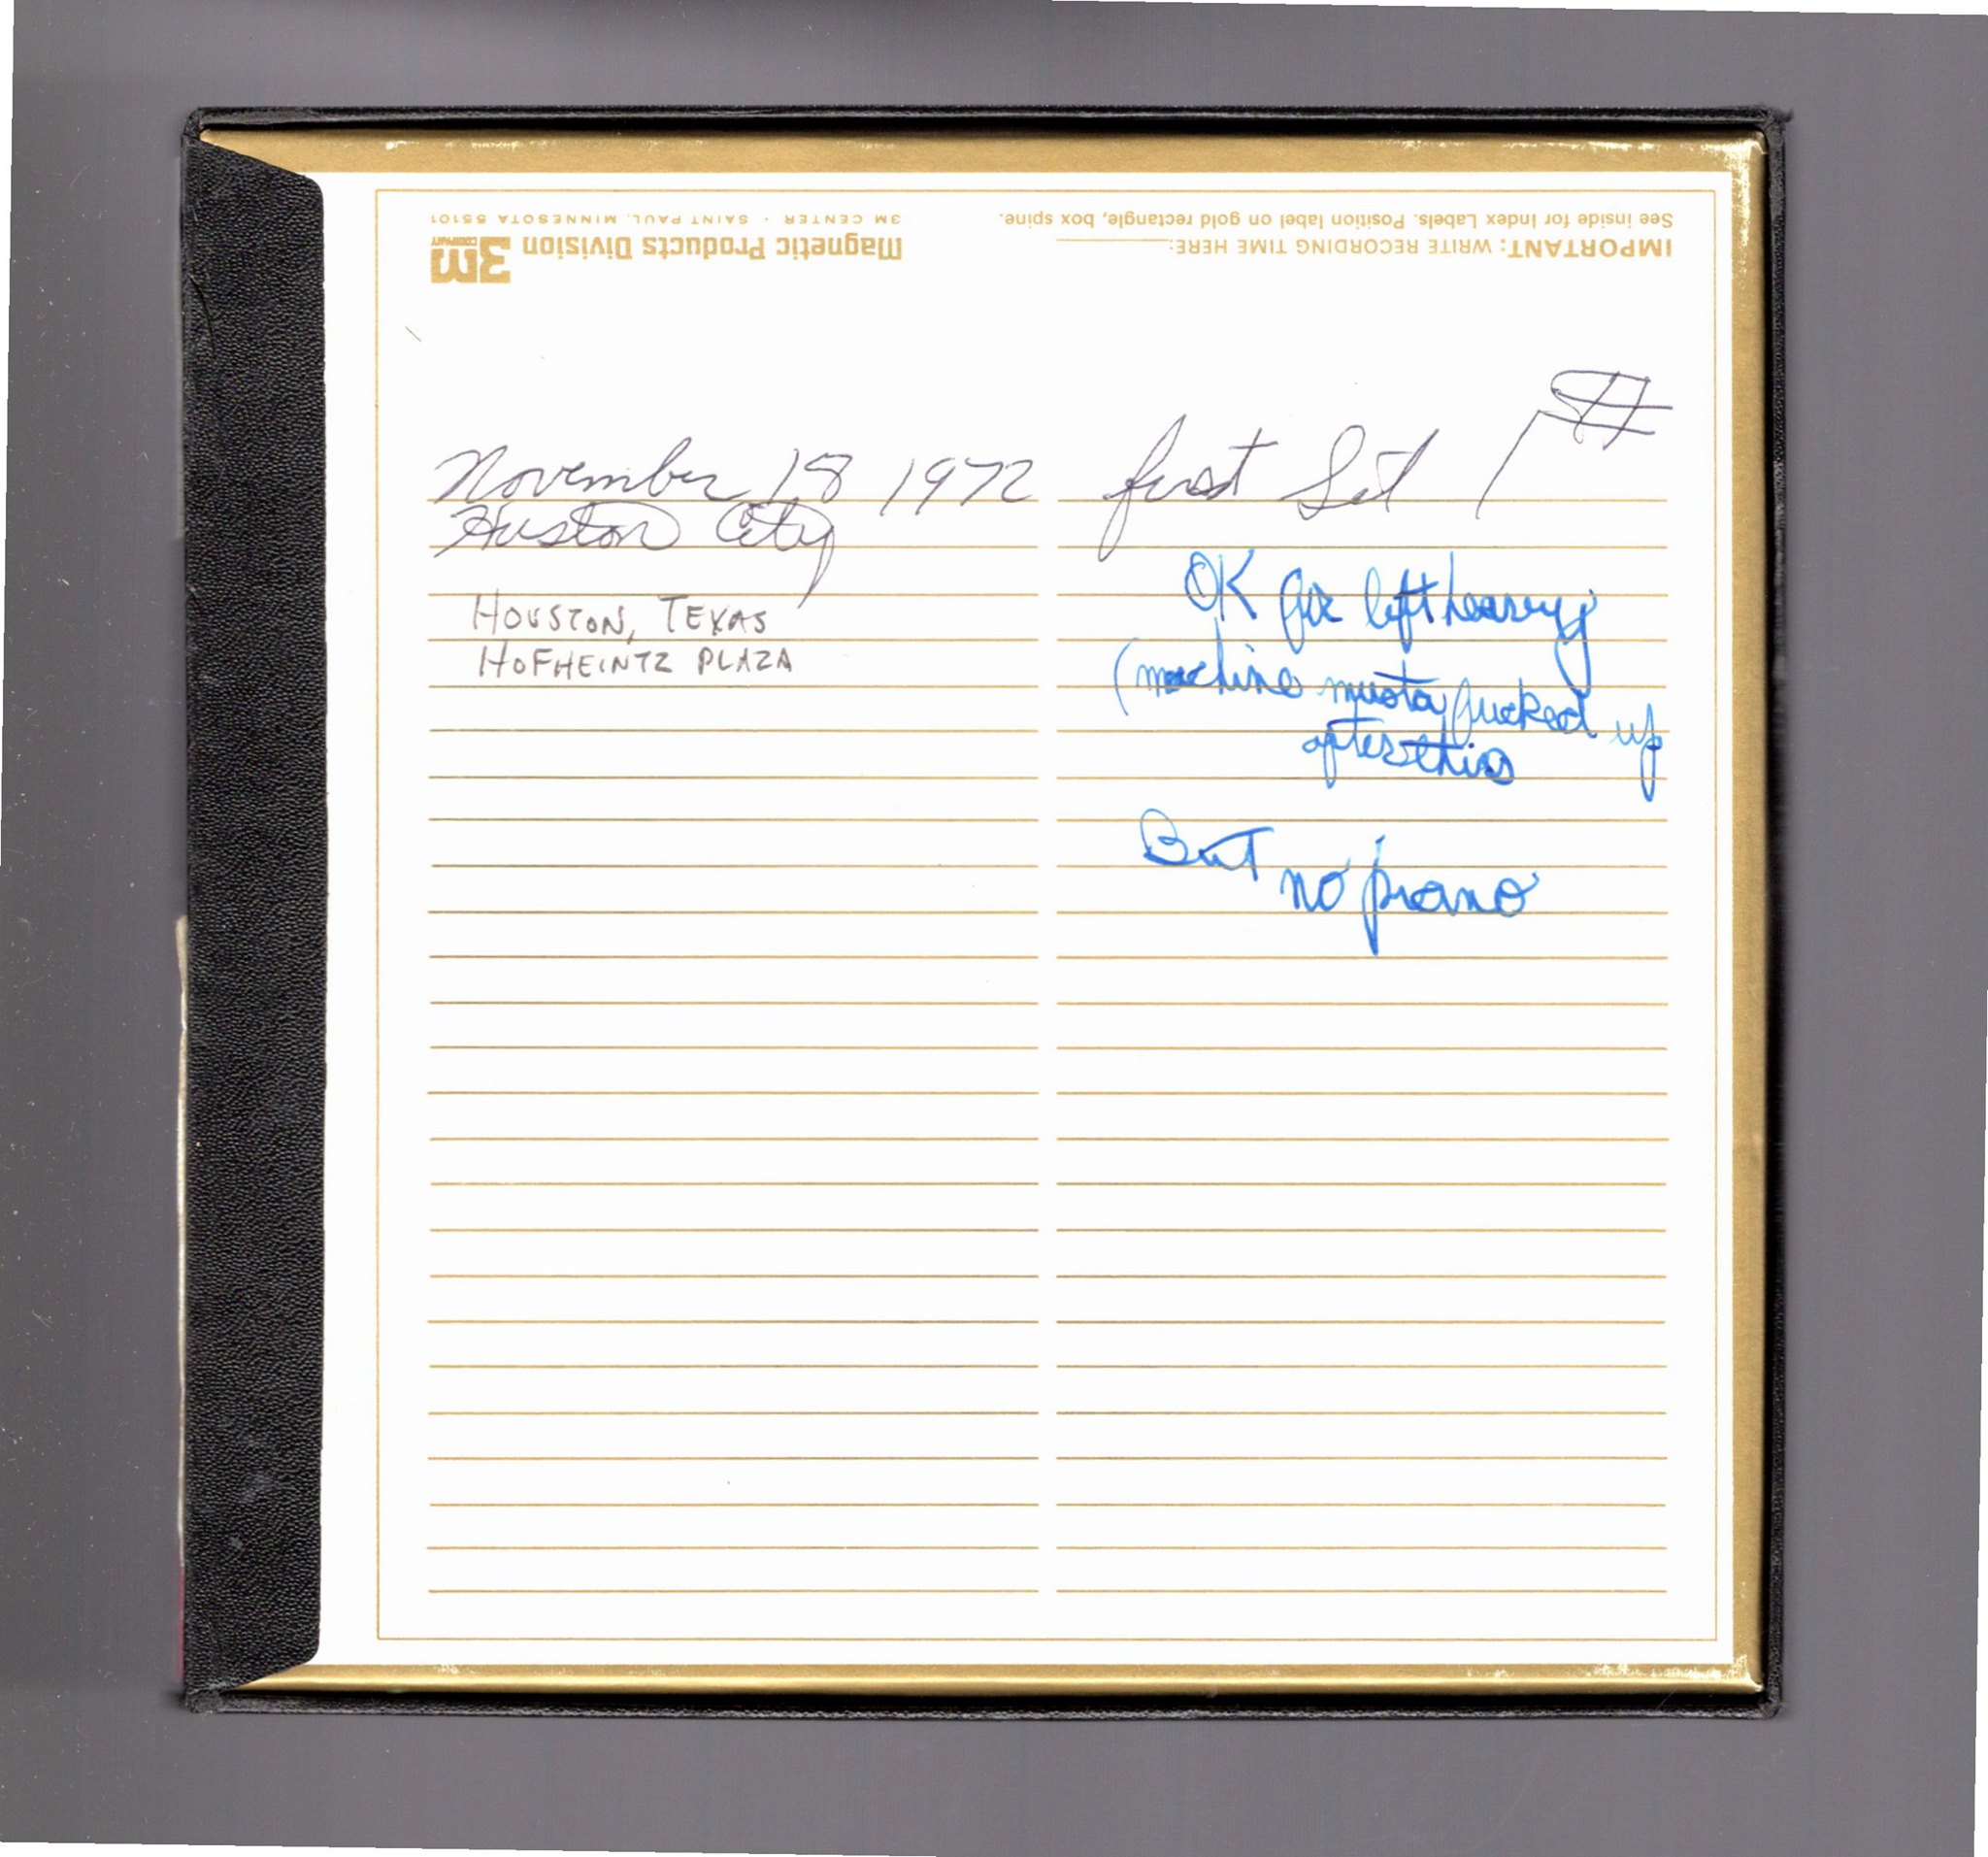 See inside for Index Labels. Position label on gold rectangle, box spine.
IMPORTANT: WRITE RECORDING TIME HERE:
3M CENTER · SAINT PAUL, MINNESOTA 55101
Magnetic Products Division 3M COMPANY
November 18 1972 first Set 1
Huston City
HOUSTON, TEXAS
HOFHEINTZ PLAZA
OK for left heavy
(machine musta fucked up
after this
But no piano